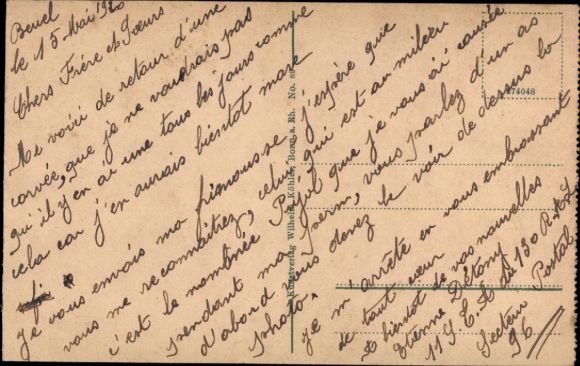 Beuel
le 15 Mai 1920
Chers Frère et Soeurs
Me voici de retour d'une
corvée, que je ne voudrais pas
qu'il y en ai une tous les jours comme
cela car j'en aurais bientôt mare
Je vous envois ma frimousse, j'espère que
vous me reconnaîtrez, celui qui est au milieu
c'est le nombrée que je vous ai causée
pendant ma perm, vous parlez d'un as
d'abord vous devez le voir de dessus la
photo.
Je m'arrête en vous embrassant
de tout cœur
A bientot de vos nouvelles
Etienne
11 du 130
Secteur Postal
96
Kunstverlag Wilhelm Köhler, Bonn a. Rh. No. 89
174048